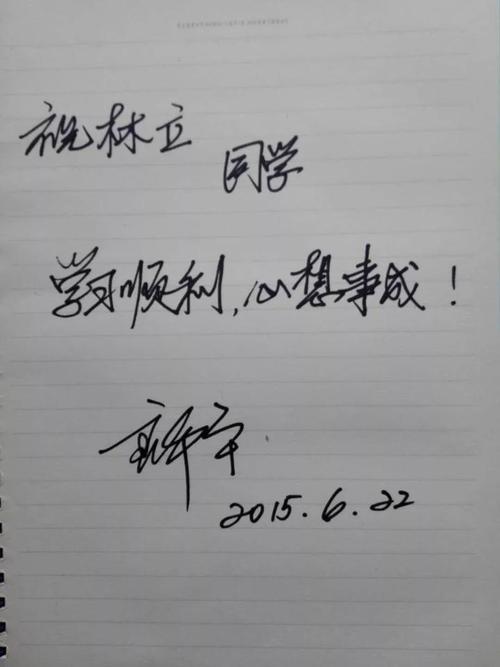 祝林立
同学
学习顺利，心想事成！
2015.6.22